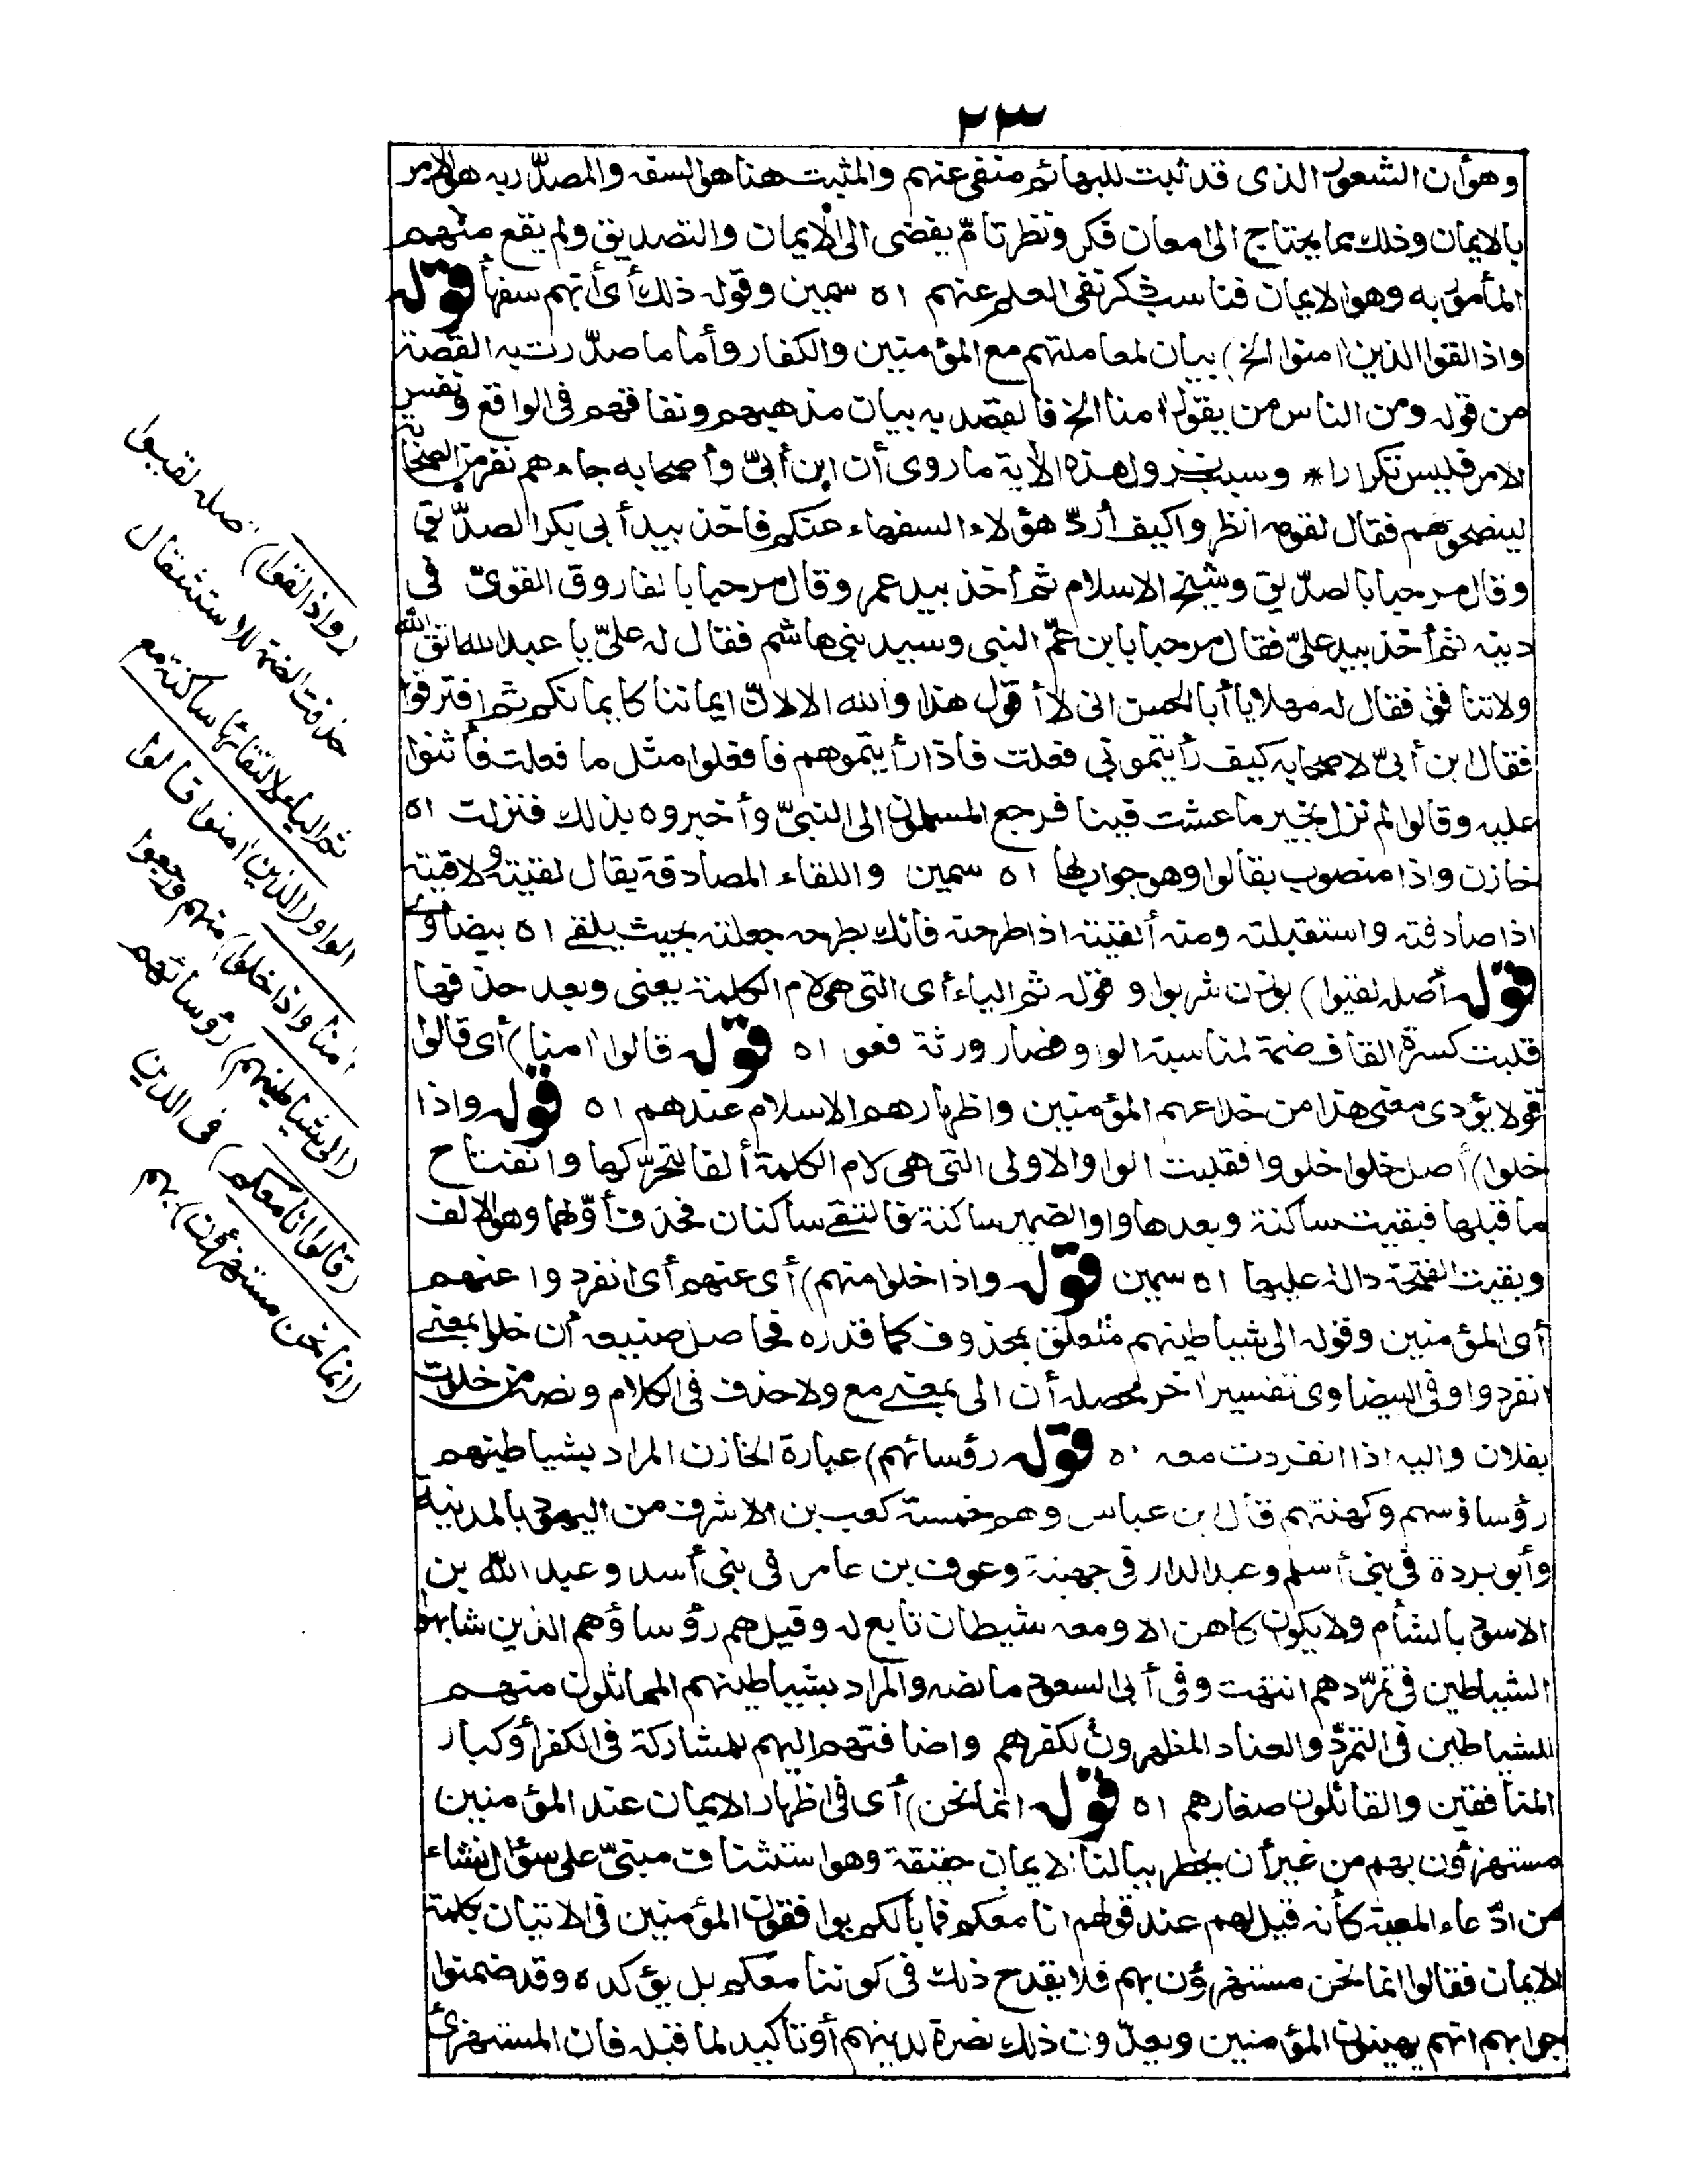 ٢٣
وهو أن الشعور الذى قد ثبت للبهائم منفى عنهم والمثبت هنا هو السفه والمصدّر به هو الامر
بالايمان وذلك مما يحتاج الى امعان فكر ونظر تامّ يفضى الى الايمان والتصديق ولم يقع منهم
المأمور به وهو الايمان فناسب ذكر نفى العلم عنهم اه سمين وقوله ذلك أى أنهم سفهاء قوله
واذا لقوا الذين امنوا الخ) بيان لمعاملتهم مع المؤمنين والكفار وأما ما صدّرت به القصة
من قوله ومن الناس من يقول امنا الخ فالمقصد به بيان مذهبهم ونفاقهم فى الواقع ونفس
الامر فليس تكرارا * وسبب نزول هذه الأية ما روى أن ابن أبىّ وأصحابه جاءهم نفر من الصحابة
لينصحوهم فقال لقومه انظروا كيف أردّ هؤلاء السفهاء عنكم فاخذ بيد أبى بكر الصدّيق
وقال مرحبا بالصدّيق وشيخ الاسلام ثم أخذ بيد عمر وقال مرحبا بالفاروق القوىّ فى
دينه ثم أخذ بيد علىّ فقال مرحبا بابن عمّ النبى وسيد بنى هاشم فقال له علىّ يا عبد الله اتق الله
ولا تنافق فقال له مهلا يا أبا الحسن انى لا أقول هذا والله الا لانّ ايماننا كايمانكم ثم افترقوا
فقال ابن أبىّ لاصحابه كيف رأيتمونى فعلت فاذا رأيتموهم فافعلوا مثل ما فعلت فأثنوا
عليه وقالوا لم نزل بخير ما عشت فينا فرجع المسلمون الى النبىّ وأخبروه بذلك فنزلت اه
خازن واذا منصوب بقالوا وهو جواب لها اه سمين واللقاء المصادفة يقال لقيته ولاقيته
اذا صادفته واستقبلته ومنه ألقيته اذا طرحته فانك بطرحه جعلته بحيث يلقى اه بيضاوى
قوله أصله لقيوا) بوزن شربوا وقوله ثم الياء أى التى هى لام الكلمة يعنى وبعد حذفها
قلبت كسرة القاف ضمة لمناسبة الواو فصار وزنه فعوا اه قوله قالوا امنا) أى قالوا
قولا يؤدى معنى هذا من خداعهم المؤمنين واظهارهم الاسلام عندهم اه قوله واذا
خلوا) أصل خلوا خلووا فقلبت الواو الاولى التى هى لام الكلمة ألفا لتحرّكها وانفتاح
ما قبلها فبقيت ساكنة وبعدها واو الضمير ساكنة فالتقى ساكنان فحذف أوّلهما وهو الالف
وبقيت الفتحة دالة عليها اه سمين قوله واذا خلوا منهم) أى عنهم أى انفردوا عنهم
أى المؤمنين وقوله الى شياطينهم متعلق بمحذوف كما قدره فحاصل صنيعه أن خلوا بمعنى
انفردوا وفى البيضاوى تفسير اخر محصله أن الى بمعنى مع ولا حذف فى الكلام ونصه من خلوت
بفلان واليه اذا انفردت معه اه قوله رؤسائهم) عبارة الخازن المراد بشياطينهم
رؤساؤهم وكهنتهم قال ابن عباس وهم خمسة كعب بن الاشرف من اليهود بالمدينة
وأبو بردة فى بنى أسلم وعبد الدار فى جهينة وعوف بن عامر فى بنى أسد وعبد الله بن
الاسود بالشأم ولا يكون كاهن الا ومعه شيطان تابع له وقيل هم رؤساؤهم الذين شابهوا
الشياطين فى تمرّدهم انتهت وفى أبى السعود ما نصه والمراد بشياطينهم المماثلون منهم
للشياطين فى التمرّد والعناد المظهرون لكفرهم واضافتهم اليهم للمشاركة فى الكفر أو كبار
المنافقين والقائلون صغارهم اه قوله انما نحن) أى فى اظهار الايمان عند المؤمنين
مستهزؤن بهم من غير أن يخطر ببالنا الايمان حقيقة وهو استئناف مبنىّ على سؤال نشاء
من ادّعاء المعية كأنه قيل لهم عند قولهم انا معكم فما بالكم توافقون المؤمنين فى الاتيان بكلمة
الايمان فقالوا انما نحن مستهزؤن بهم فلا يقدح ذلك فى كوننا معكم بل يؤكده وقد ضمنوا
جوابهم انهم يهينون المؤمنين ويعدّون ذلك نصرة لدينهم أو تأكيد لما قبله فان المستهزئ
(واذا لقوا) أصله لقيوا
حذفت الضمة للاستثقال
ثم الياء لالتقائها ساكنة مع
الواو (الذين امنوا قالوا
امنا واذا خلوا) منهم ورجعوا
(الى شياطينهم) رؤسائهم
(قالوا انا معكم) فى الدين
(انما نحن مستهزؤن) بهم